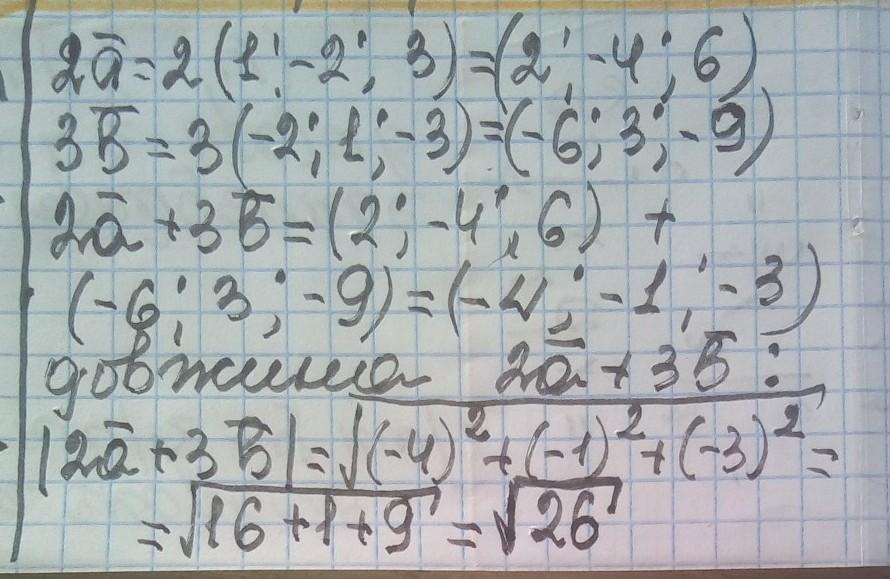 2a̅ = 2(1; -2; 3) = (2; -4; 6)
3b̅ = 3(-2; 1; -3) = (-6; 3; -9)
2a̅ + 3b̅ = (2; -4; 6) +
(-6; 3; -9) = (-4; -1; -3)
довжина 2a̅ + 3b̅:
|2a̅ + 3b̅| = √((-4)² + (-1)² + (-3)²) =
= √(16 + 1 + 9) = √26